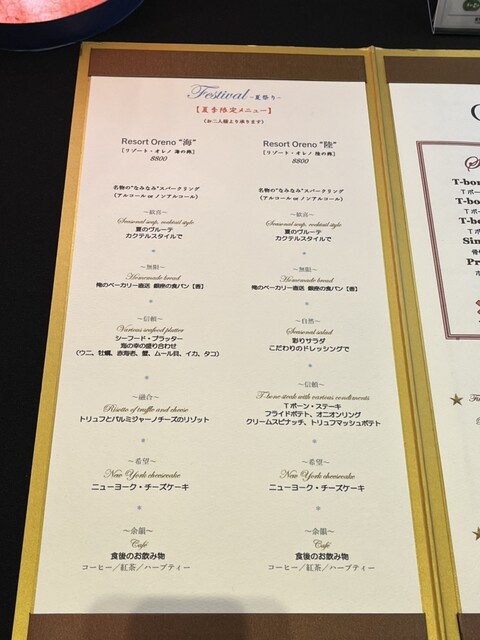 Festival ~夏祭り~
【夏季限定メニュー】
(お二人様より承ります)
Resort Oreno "海"
[リゾート・オレノ 海の絆]
8800
名物の"なみなみ"スパークリング
(アルコール or ノンアルコール)
~歓喜~
Seasonal soup, cocktail style
夏のヴルーテ
カクテルスタイルで
~無限~
Homemade bread
俺のベーカリー直送 銀座の食パン【香】
~信頼~
Various seafood platter
シーフード・プラッター
海の幸の盛り合わせ
(ウニ、牡蠣、赤海老、蟹、ムール貝、イカ、タコ)
~融合~
Risotto of truffle and cheese
トリュフとパルミジャーノチーズのリゾット
~希望~
New York cheesecake
ニューヨーク・チーズケーキ
~余韻~
Café
食後のお飲み物
コーヒー/紅茶/ハーブティー
Resort Oreno "陸"
[リゾート・オレノ 陸の絆]
8800
名物の"なみなみ"スパークリング
(アルコール or ノンアルコール)
~歓喜~
Seasonal soup, cocktail style
夏のヴルーテ
カクテルスタイルで
~無限~
Homemade bread
俺のベーカリー直送 銀座の食パン【香】
~自然~
Seasonal salad
彩りサラダ
こだわりのドレッシングで
~信頼~
T-bone steak with various condiments
Tボーン・ステーキ
フライドポテト、オニオンリング
クリームスピナッチ、トリュフマッシュポテト
~希望~
New York cheesecake
ニューヨーク・チーズケーキ
~余韻~
Café
食後のお飲み物
コーヒー/紅茶/ハーブティー
T-bon
Tボー
T-bo
Tボ
T-bo
Tボ
Sin
Pr